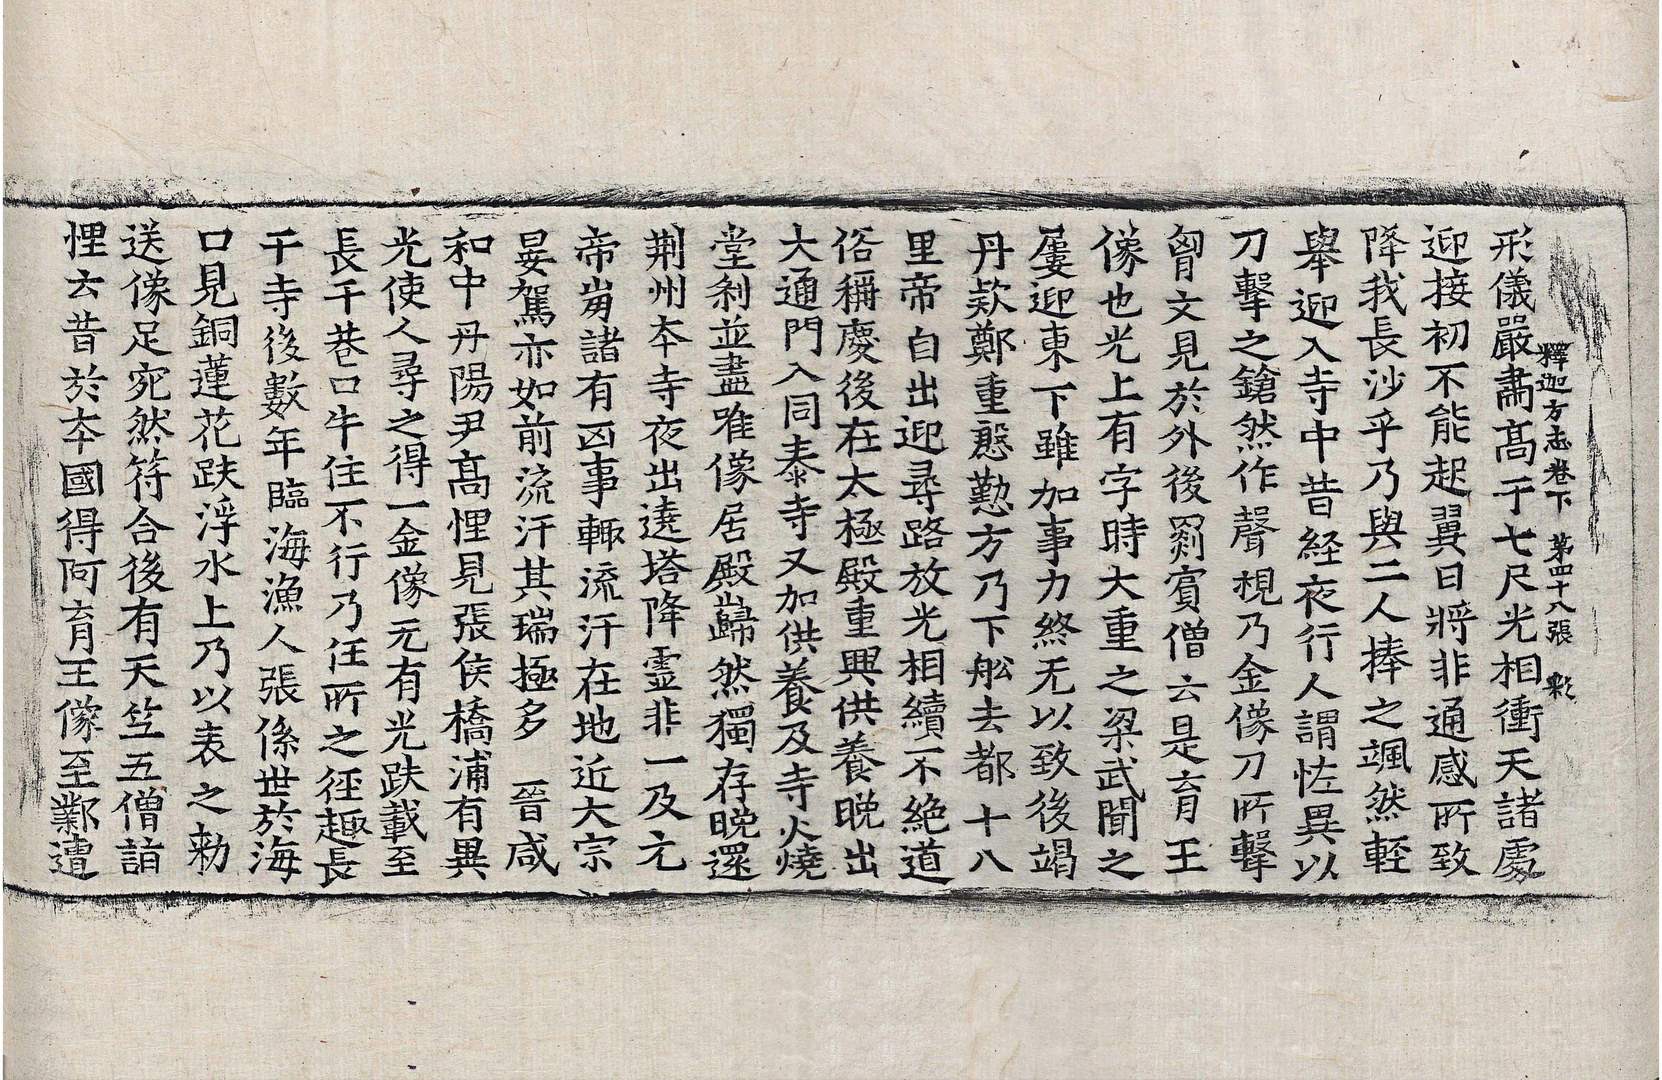 釋迦方志卷下　第四十八張　彩
形儀嚴肅高于七尺光相衝天諸處
迎接初不能起翼曰將非通感所致
降我長沙乎乃與二人捧之颯然輕
舉迎入寺中昔経夜行人謂恠異以
刀擊之鎗然作聲視乃金像刀所擊
胷文見於外後罽賓僧云是育王
像也光上有字時大重之梁武聞之
屢迎東下雖加事力終无以致後竭
丹欵鄭重慇懃方乃下舩去都十八
里帝自出迎尋路放光相續不絶道
俗稱慶後在太極殿重興供養晚出
大通門入同泰寺又加供養及寺火燒
堂刹並盡唯像居殿巋然獨存晚還
荆州夲寺夜出遶塔降靈非一及元
帝崩諸有凶事輙流汗在地近大宗
晏駕亦如前流汗其瑞極多　晉咸
和中丹陽尹高悝見張侯橋浦有異
光使人尋之得一金像元有光趺載至
長干巷口牛住不行乃任所之徑趣長
干寺後數年臨海漁人張係世於海
口見銅蓮花趺浮水上乃以表之勑
送像足宛然符合後有天竺五僧詣
悝云昔於夲國得阿育王像至鄴遭